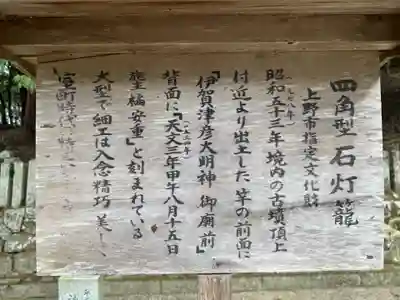 四角型石灯籠
上野市指定文化財
(一九七八年)
昭和五十三年境内の古墳頂上
付近より出土した竿の前面に
「伊賀津彦大明神 御廟前」
(一五三四年)
背面に「天文三年甲午八月十五日
安重」と刻まれている
大型で細工は入念精巧で美しく
室町時代